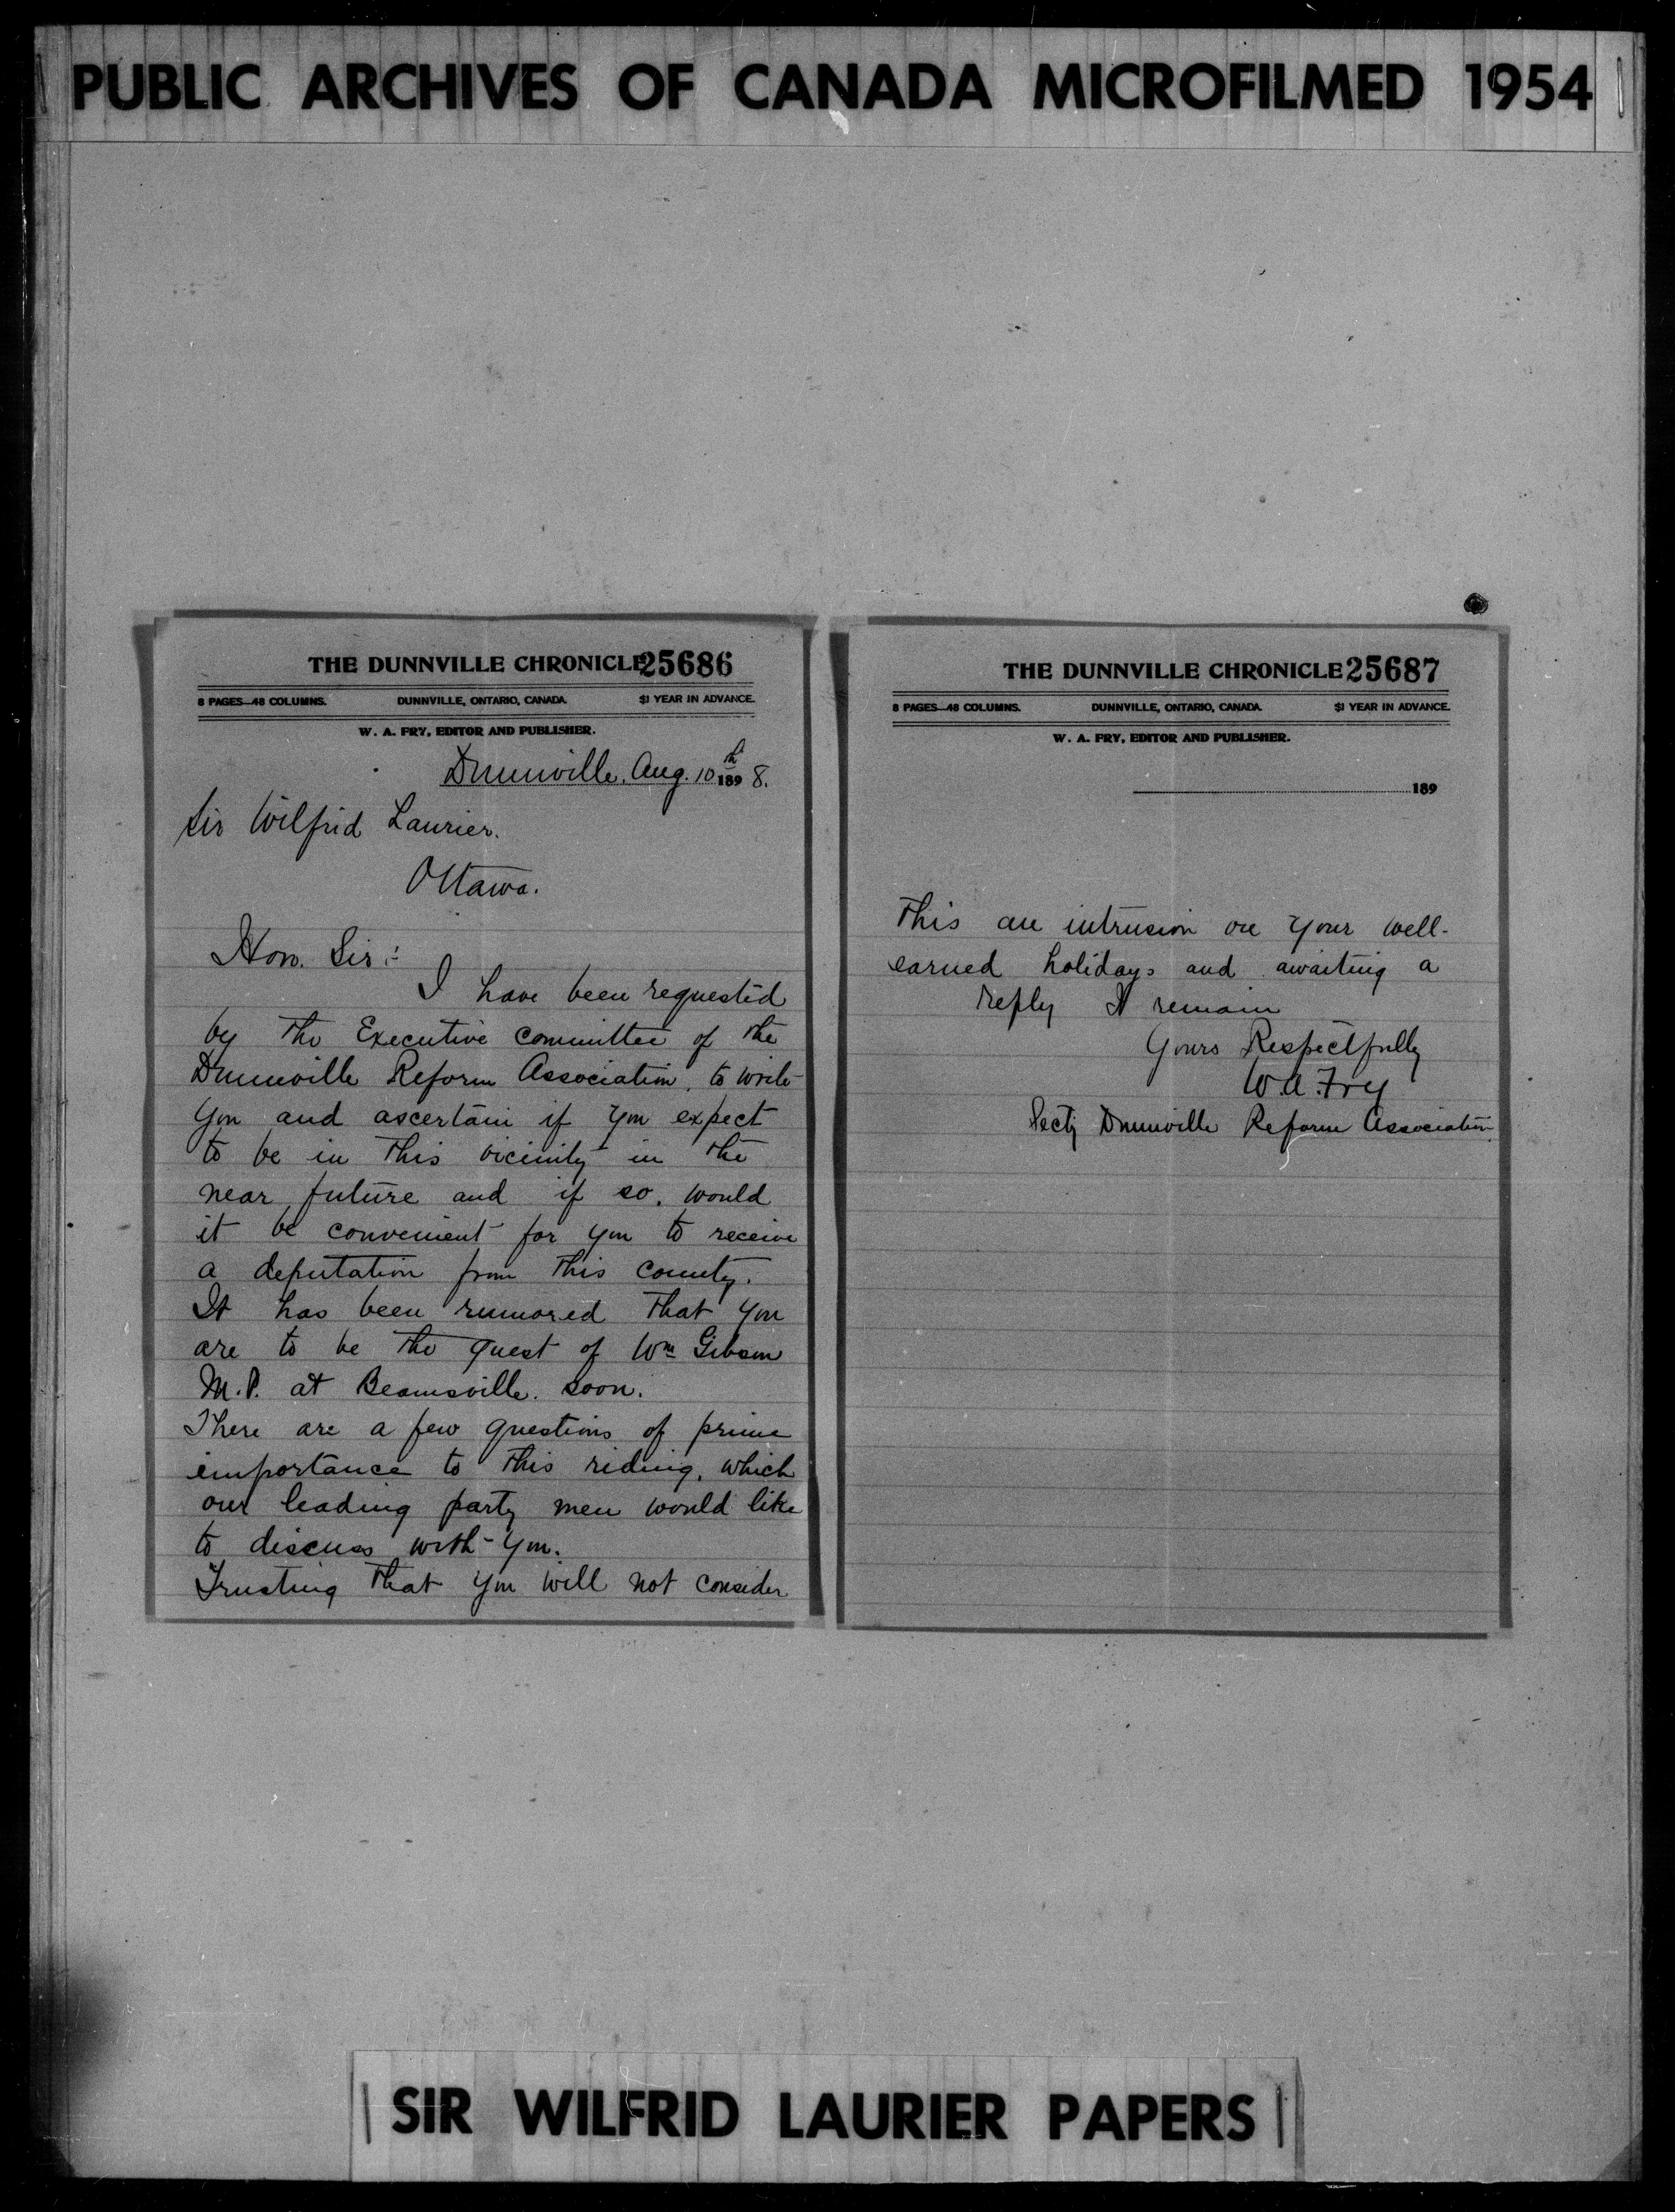 PUBLIC ARCHIVES OF CANADA MICROFILMED 1954
THE DUNNVILLE CHRONICLE 25686
8 PAGES—48 COLUMNS. DUNNVILLE, ONTARIO, CANADA. $1 YEAR IN ADVANCE.
W. A. FRY, EDITOR AND PUBLISHER.
Dunnville, Aug. 10th 1898.
Sir Wilfrid Laurier.
Ottawa.
Hon. Sir:-
I have been requested
by the Executive committee of the
Dunnville Reform Association, to write
you and ascertain if you expect
to be in this vicinity in the
near future and if so, would
it be convenient for you to receive
a deputation from this county.
It has been rumored that you
are to be the guest of Wm Gibson
M.P. at Beamsville. soon.
There are a few questions of prime
importance to this riding, which
our leading party men would like
to discuss with you.
Trusting that you will not consider
THE DUNNVILLE CHRONICLE 25687
8 PAGES—48 COLUMNS. DUNNVILLE, ONTARIO, CANADA. $1 YEAR IN ADVANCE.
W. A. FRY, EDITOR AND PUBLISHER.
189
this an intrusion on your well-
earned holidays and awaiting a
reply I remain
Yours Respectfully
W.A. Fry
Secty Dunnville Reform Association
SIR WILFRID LAURIER PAPERS